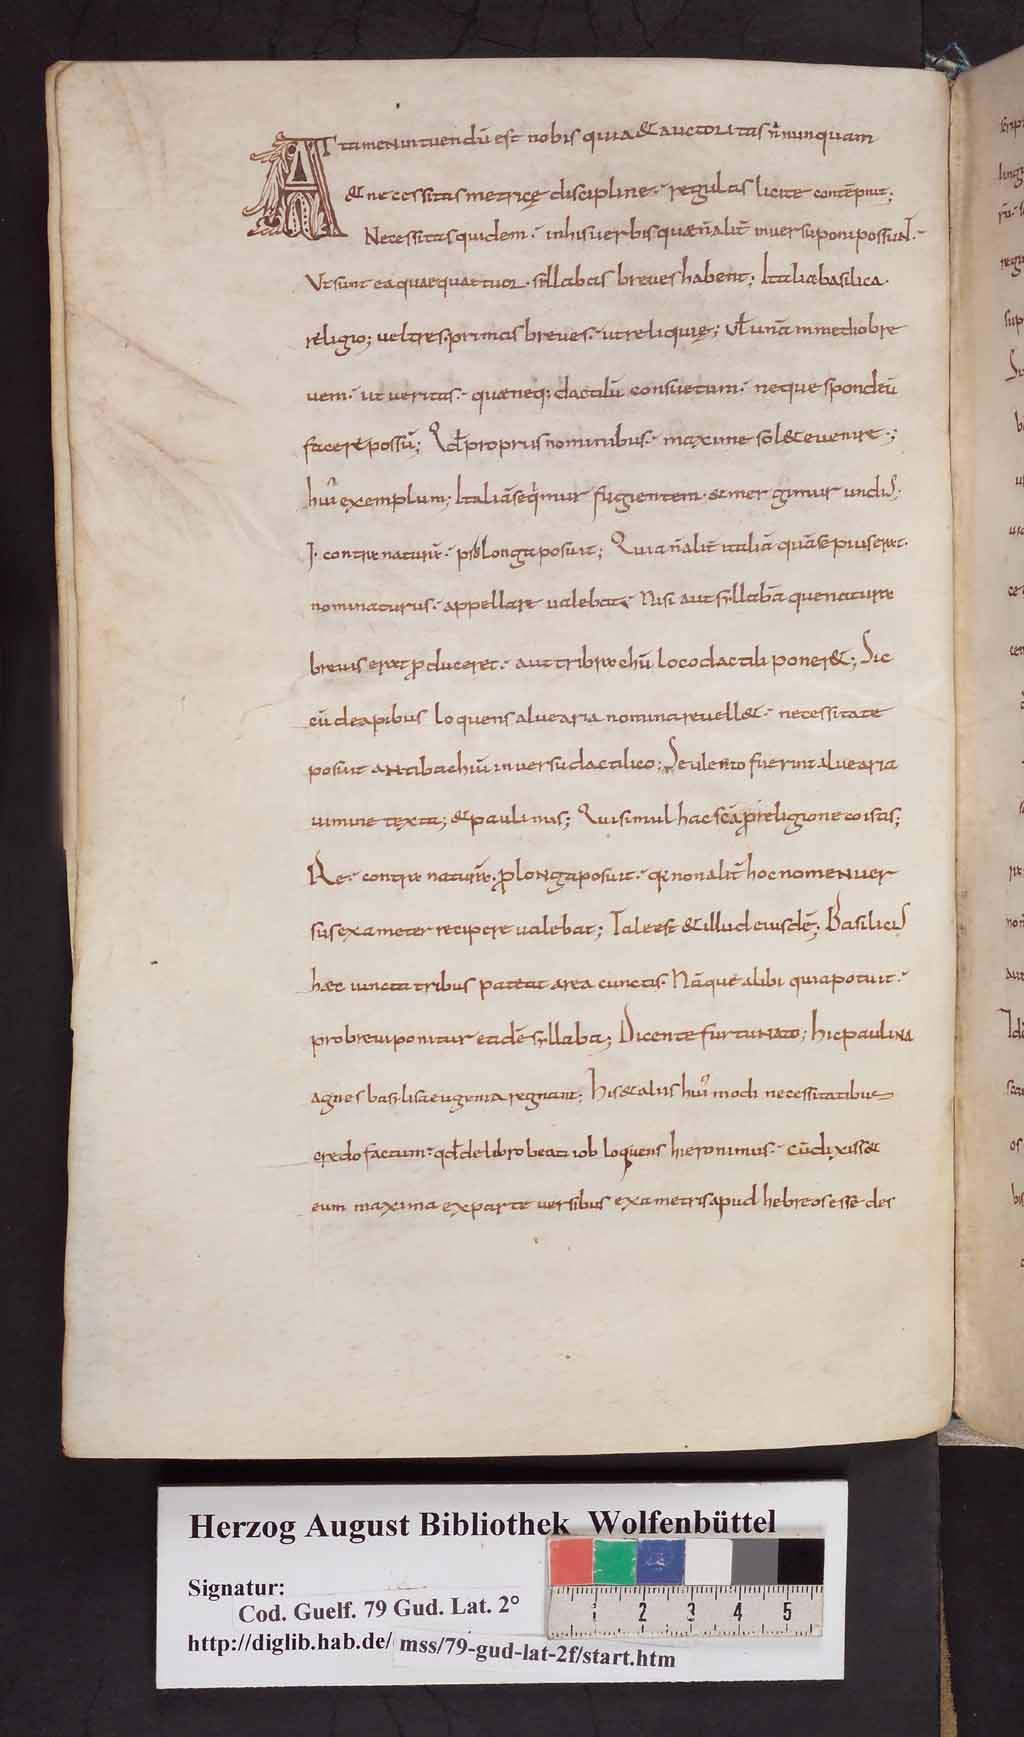 ATtamen intuendū est nobis quia & auctoritas ñ nunquam
& necessitas metricę discipline· regulas licite contēpnit;
Necessitas quidem· in his uerbis quae ñ alit̄ in uersu poni possuNT·
Ut sunt ea quae quattuor· sillabas breues habent; Italia basilica·
religio; uel tres· primas breues· ut reliquię; ut̄ unā in medio bre
uem· ut ueritas· quae neq; dactilū consuetum· neque spondeū
facere possū; Qd̄ propriis nominibus· maxime sol& euenire·;
huī exemplum; Italiā sequimur fugientem· & mergimur undis;
I· contra naturā· pro longa posuit; Quia ñ alit̄ italiā quā sepius erat·
nominaturus· appellare ualebat; Nisi aut syllabā que natura
breuis erat produceret· aut tribrachū loco dactili poner&; Sic
cū de apibus loquens aluearia nominare uell&· necessitate
posuit aNtibachiū in uersu dactilico; Seu lento fuerint aluearia
uimine texta; & paulinus; Qui simul hac scā pro religione coistis;
Re· contra naturā· pro loNga posuit· qa non alit̄ hoc nomeN uer
sus exameter recipere ualebat; Tale est & illud eiusdē; Basilicis
haec iuncta tribus patet area cunctis· Nāque alibi quia potuit·
pro breui ponitur eadē syllaba; Dicente furtuNato; hic pauliNa
agnes basylisca eugenia regnant; His & aliis huī modi necessitatibus
credo factum· qd̄ de libro beati iob loquens hieronimus· cū dixiss&
eum maxima ex parte uersibus exametris apud hebreos esse des
Herzog August Bibliothek Wolfenbüttel
Signatur:
Cod. Guelf. 79 Gud. Lat. 2°
http://diglib.hab.de/ mss/79-gud-lat-2f/start.htm
1 2 3 4 5